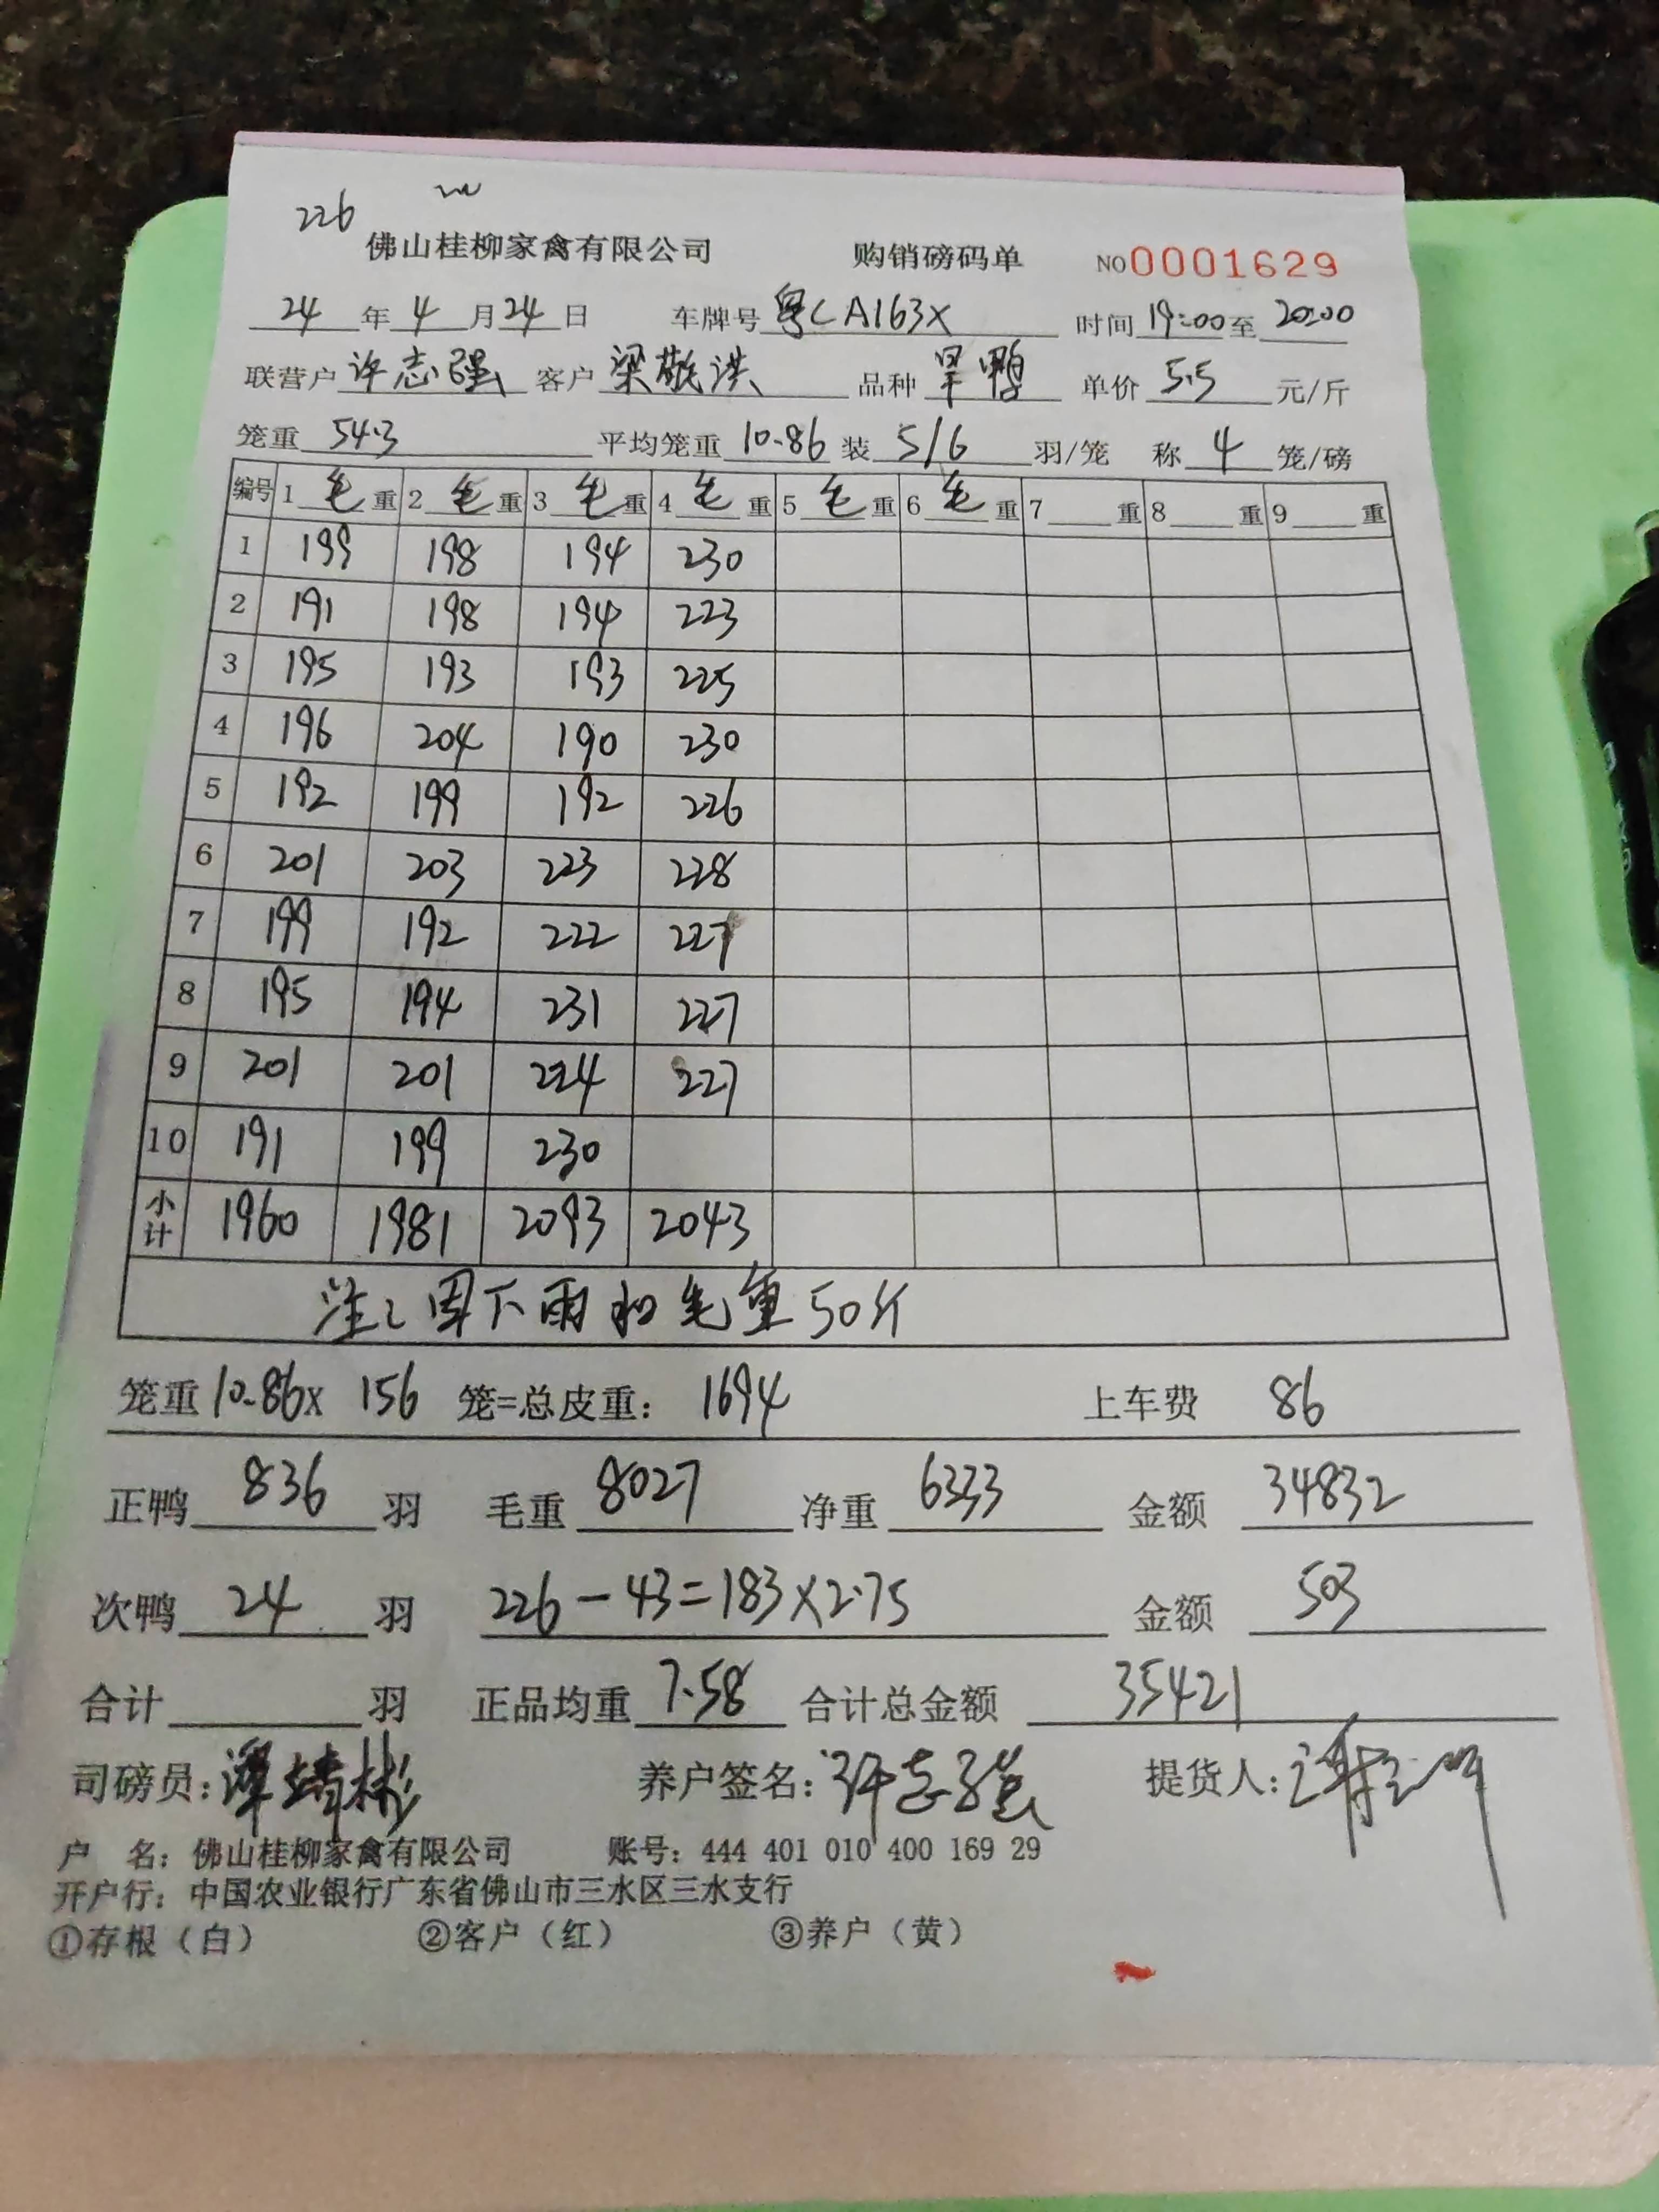 226
佛山桂柳家禽有限公司 购销磅码单 NO 0001629
24 年 4 月 24 日 车牌号 粤CA163X 时间 19:00 至 20:00
联营户 许志强 客户 梁敬洪 品种 旱鸭 单价 5.5 元/斤
笼重 54.3 平均笼重 10.86 装 5/6 羽/笼 称 4 笼/磅
编号 1 毛 重 2 毛 重 3 毛 重 4 毛 重 5 毛 重 6 毛 重 7 重 8 重 9 重
1 199 198 194 230
2 191 198 194 223
3 195 193 193 225
4 196 204 190 230
5 192 199 192 226
6 201 203 223 228
7 199 192 222 227
8 195 194 231 227
9 201 201 224 227
10 191 199 230
小计 1960 1981 2093 2043
注: 因下雨扣毛重50斤
笼重 10.86x 156 笼=总皮重: 1694 上车费 86
正鸭 836 羽 毛重 8027 净重 6333 金额 34832
次鸭 24 羽 226-43=183×2.75 金额 503
合计 羽 正品均重 7.58 合计总金额 35421
司磅员: 谭靖彬 养户签名: 许志强 提货人:
户 名: 佛山桂柳家禽有限公司 账号: 444 401 010 400 169 29
开户行: 中国农业银行广东省佛山市三水区三水支行
①存根（白） ②客户（红） ③养户（黄）